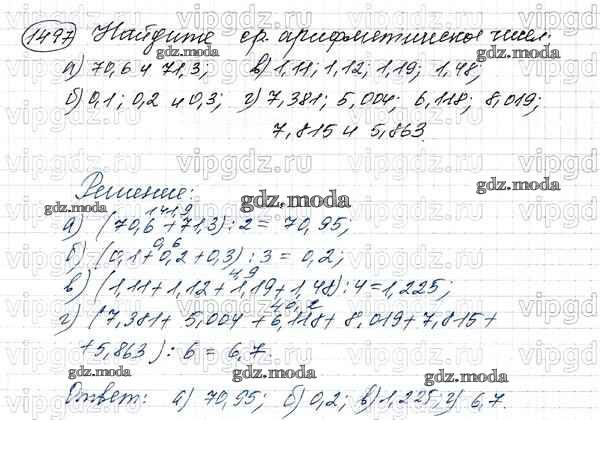 1497 Найдите ср. арифметическое чисел:
а) 70,6 и 71,3; в) 1,11; 1,12; 1,19; 1,48;
б) 0,1; 0,2 и 0,3; г) 7,381; 5,004; 6,118; 8,019;
7,815 и 5,863.
Решение:
141,9
а) (70,6 + 71,3) : 2 = 70,95;
0,6
б) (0,1 + 0,2 + 0,3) : 3 = 0,2;
4,9
в) (1,11 + 1,12 + 1,19 + 1,48) : 4 = 1,225;
40,2
г) (7,381 + 5,004 + 6,118 + 8,019 + 7,815 +
+ 5,863) : 6 = 6,7.
Ответ: а) 70,95; б) 0,2; в) 1,225; г) 6,7.
vipgdz.ru
gdz.moda